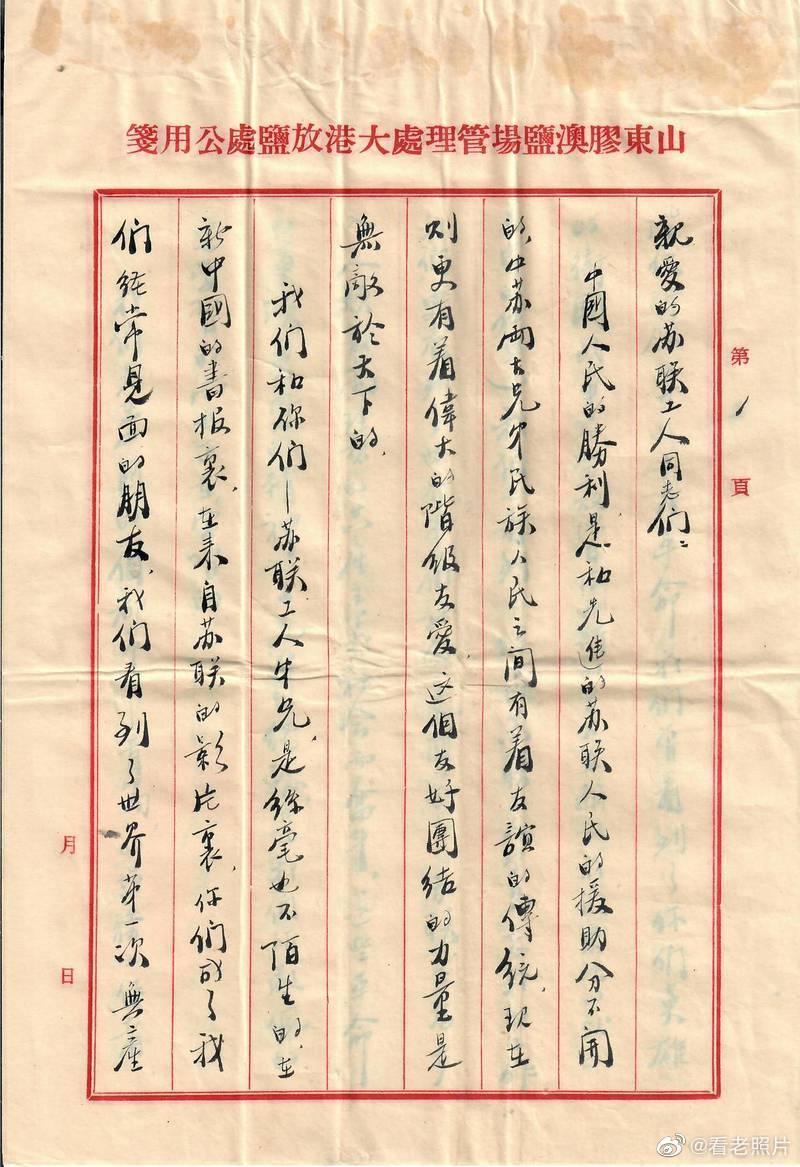 山東膠澳鹽場管理處大港放鹽處公用箋
第 1 頁
親爱的苏联工人同志们：
中國人民的勝利是和先進的苏联人民的援助分不開
的，中苏両大兄弟民族人民之间有着友誼的傳統，现在
则更有着偉大的階级友愛，这個友好團结的力量是
無敵於天下的，
我们和你们—苏联工人弟兄，是絲毫也不陌生的，在
新中國的書报裏，在来自苏联的影片裏，你们成了我
们经常見面的朋友，我们看到了世界第一次無産
月 日
@看老照片